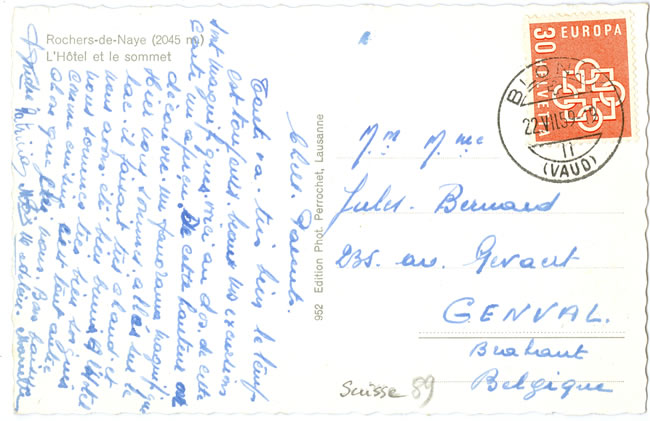 Rochers-de-Naye (2045 m)
L'Hôtel et le sommet
Chers Parents.
Tout va très bien le temps
est toujours beau nos excursions
sont magnifiques, voici au dos de cette
carte un aperçu. De cette hauteur on
découvre un panorama magnifique
Hier nous sommes allés sur le
lac. il faisait très chaud et
nous avons été bien
nous sommes très bien soignés
comme cuisine c'est tout autre
chose que chez nous. Bons baisers
952 Edition Phot. Perrochet, Lausanne
EUROPA
30
HELVETIA
BLONAY
22.VII.59-19
(VAUD)
Mr Mme
Jules. Bernard
235. av Gevaert
GENVAL.
Brabant
Belgique
Suisse 89